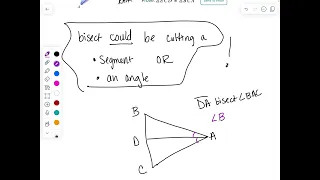 bisect could be cutting a
• Segment OR
• an angle
!
DA bisect ∠BAC
∠B
B
D
A
C